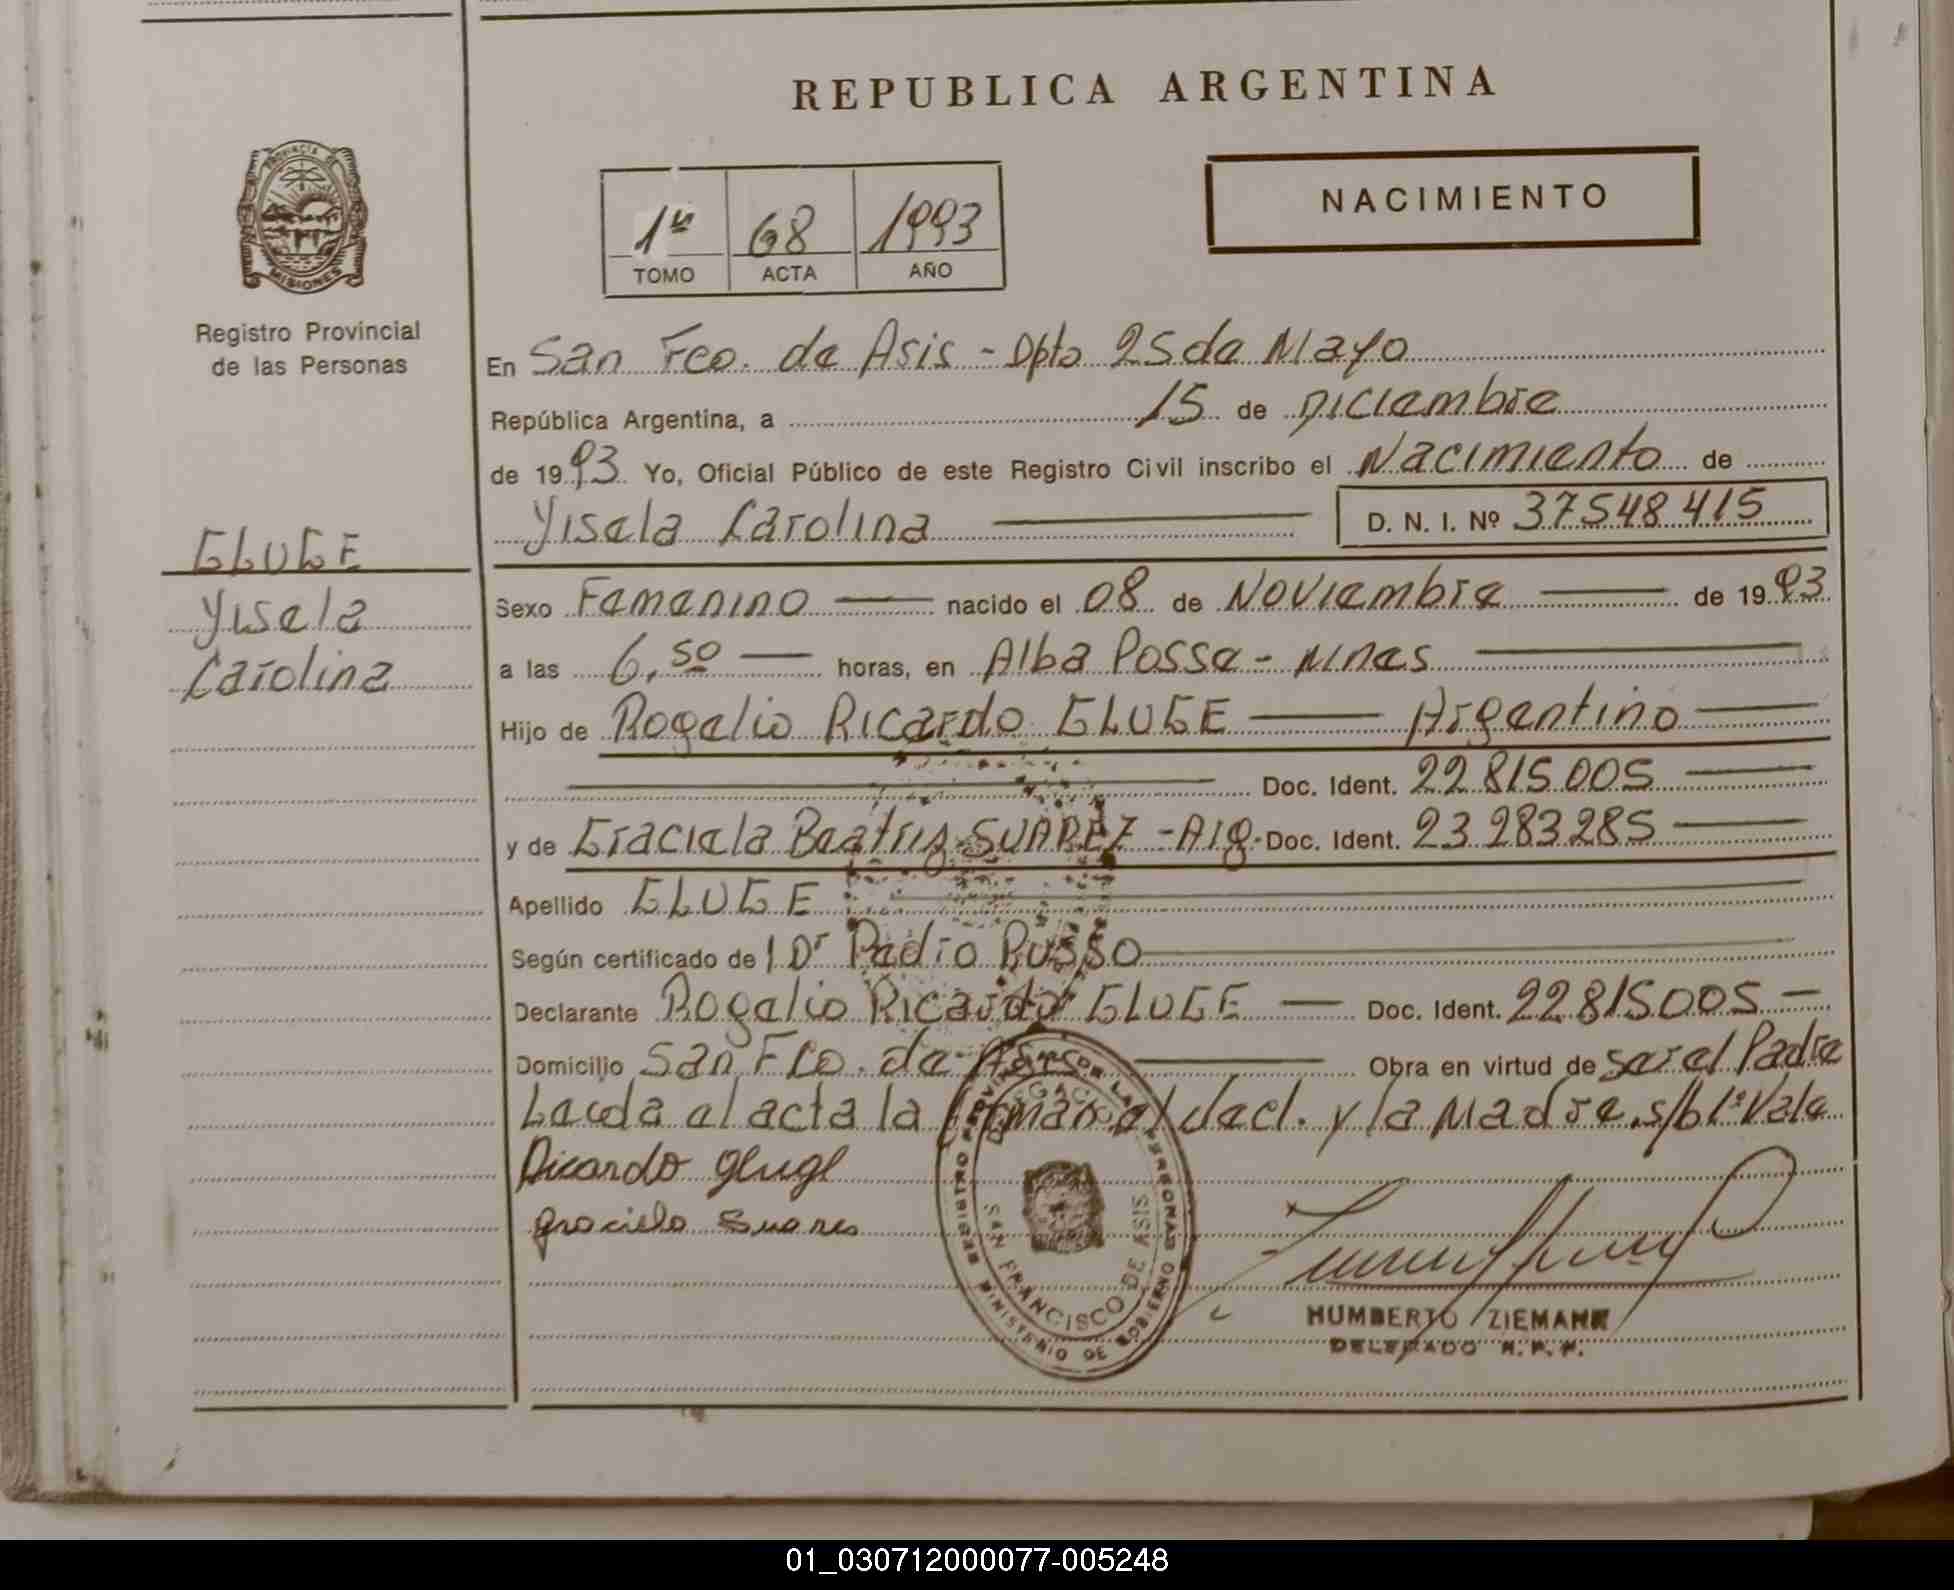 REPUBLICA ARGENTINA
PROVINCIA DE MISIONES
Registro Provincial
de las Personas
1º 68 1993
TOMO ACTA AÑO
NACIMIENTO
En San Fco. de Asis - Dpto 25 de Mayo
República Argentina, a 15 de Diciembre
de 1993 Yo, Oficial Público de este Registro Civil inscribo el Nacimiento de
Yisela Carolina D. N. I. Nº 37548415
GLUGE
Yisela
Carolina
Sexo Femenino nacido el 08 de Noviembre de 1993
a las 6,50 horas, en Alba Posse - Mnes
Hijo de Rogelio Ricardo GLUGE Argentino
Doc. Ident. 22.815.005
y de Graciela Beatriz SUAREZ - Arg. Doc. Ident. 23.283.285
Apellido GLUGE
Según certificado de l Dr Pedro Russo
Declarante Rogelio Ricardo GLUGE Doc. Ident. 22.815.005
Domicilio San Fco. de Asis Obra en virtud de ser el Padre
Leida el acta la firman el decl. y la Madre, s/b 1º Vale
Ricardo gluge
graciela Suares
REGISTRO PROVINCIAL DE LAS PERSONAS
MINISTERIO DE GOBIERNO
DELEGACION
SAN FRANCISCO DE ASIS
HUMBERTO ZIEMANN
DELEGADO R.P.P.
01_030712000077-005248